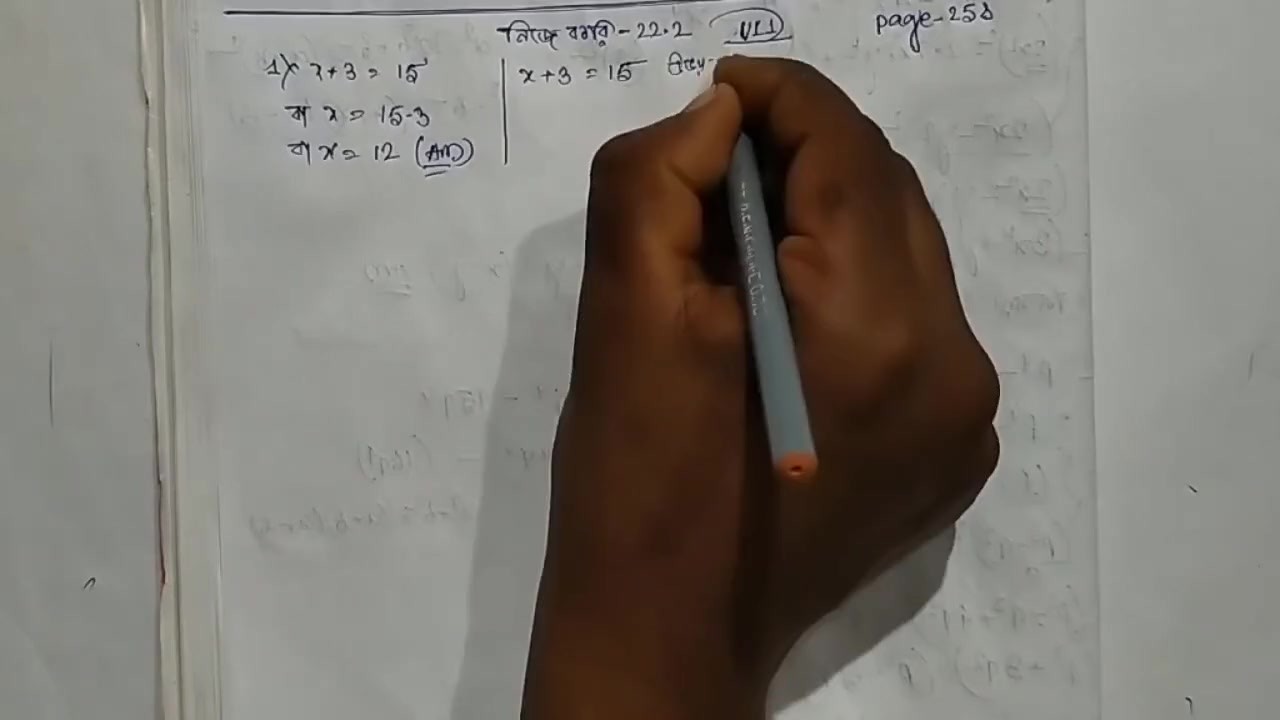 নিজে করি - 22.2 VII page - 258
1) x + 3 = 15
বা x = 15 - 3
বা x = 12 (Ans)
x + 3 = 15